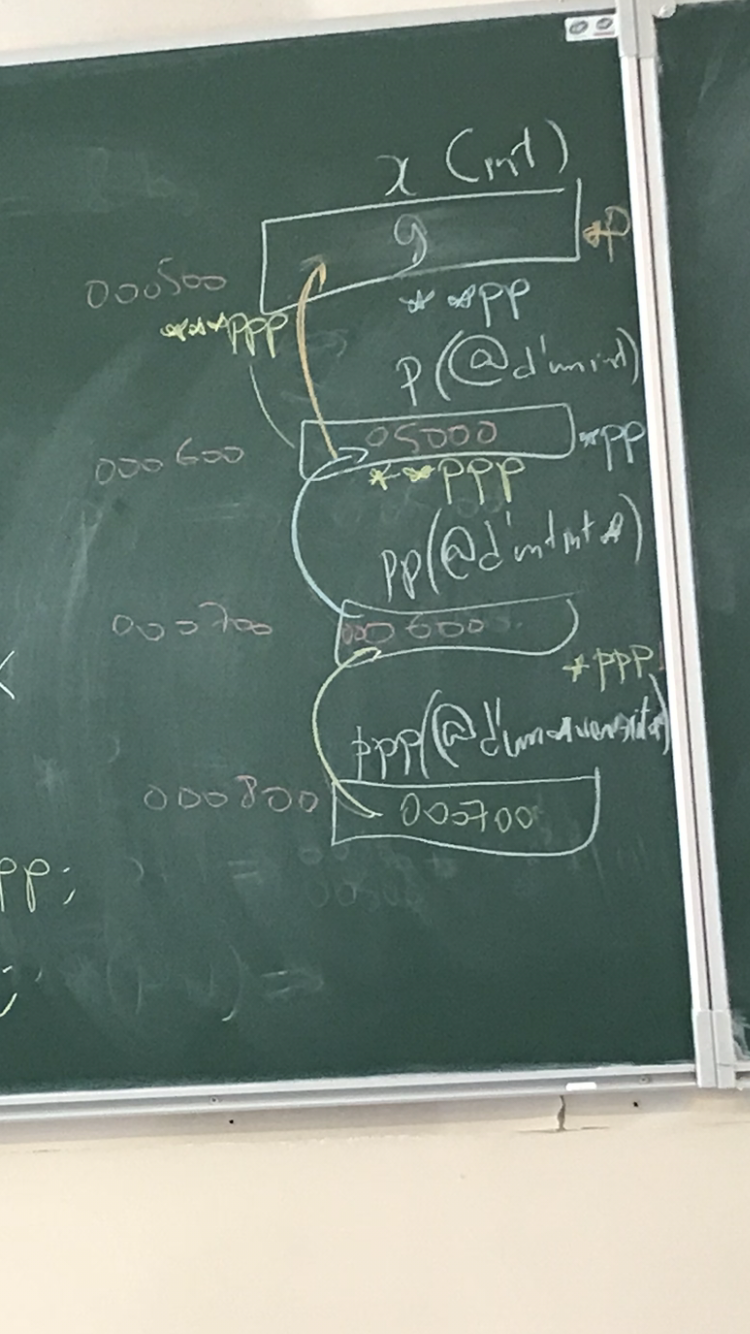 x (int)
9
*p
000500
**pp
***ppp
p(@d'un int)
05000
*pp
000600
**ppp
pp(@d'int int*)
000700
000600
*ppp
ppp(@
000800
000700
pp;
;